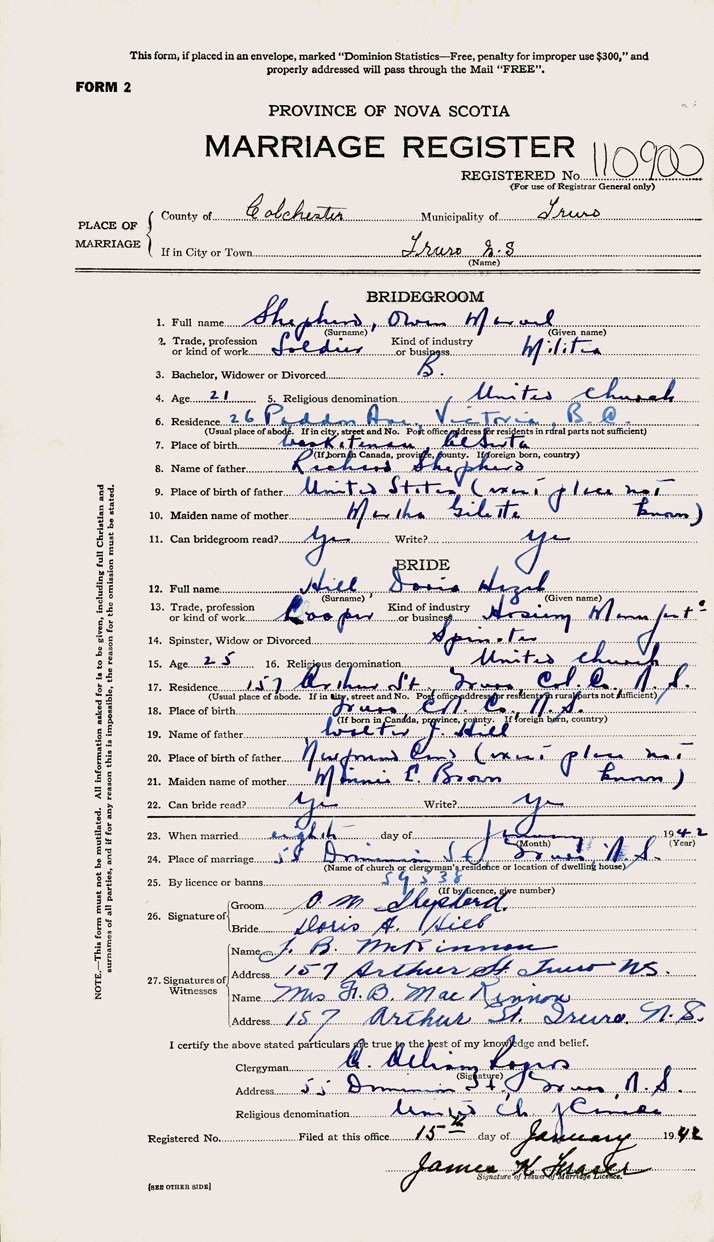 This form, if placed in an envelope, marked "Dominion Statistics—Free, penalty for improper use $300," and
properly addressed will pass through the Mail "FREE".
FORM 2
PROVINCE OF NOVA SCOTIA
MARRIAGE REGISTER
REGISTERED No. 110900
(For use of Registrar General only)
PLACE OF MARRIAGE
County of Colchester Municipality of Truro
If in City or Town Truro N.S
(Name)
BRIDEGROOM
1. Full name Shepherd, Owen
(Surname) (Given name)
2. Trade, profession or kind of work Soldier Kind of industry or business Militia
3. Bachelor, Widower or Divorced B.
4. Age 21 5. Religious denomination United Church
6. Residence 26 Paddon Ave, Victoria, B.C.
(Usual place of abode. If in city, street and No. Post office address for residents in rural parts not sufficient)
7. Place of birth Alberta
(If born in Canada, province, county. If foreign born, country)
8. Name of father Richard Shepherd
9. Place of birth of father United States (exact place not
10. Maiden name of mother Martha Gilette known)
11. Can bridegroom read? Yes Write? Yes
BRIDE
12. Full name Hill, Doris Hazel
(Surname) (Given name)
13. Trade, profession or kind of work Looper Kind of industry or business Hosiery Manufact'
14. Spinster, Widow or Divorced Spinster
15. Age 25 16. Religious denomination United Church
17. Residence 157 Arthur St, Truro, Col. Co., N.S.
(Usual place of abode. If in city, street and No. Post office address for residents in rural parts not sufficient)
18. Place of birth Truro, Col. Co., N.S.
(If born in Canada, province, county. If foreign born, country)
19. Name of father Walter J. Hill
20. Place of birth of father Newfoundland (exact place not
21. Maiden name of mother Minnie E. Brown known)
22. Can bride read? Yes Write? Yes
23. When married eighth day of January 1942
(Month) (Year)
24. Place of marriage 55 Dominion St, Truro, N.S.
(Name of church or clergyman's residence or location of dwelling house)
25. By licence or banns 59538
(If by licence, give number)
26. Signature of
Groom O M Shepherd.
Bride Doris H. Hill
27. Signatures of Witnesses
Name F. B. McKinnon
Address 157 Arthur St Truro NS.
Name Mrs F. B. MacKinnon
Address 157 Arthur St. Truro, N.S.
I certify the above stated particulars are true to the best of my knowledge and belief.
Clergyman
(Signature)
Address 55 Dominion St., Truro, N.S.
Religious denomination United Ch of Canada
Registered No. Filed at this office 15th day of January 1942
James K Fraser
Signature of Issuer of Marriage Licence.
[SEE OTHER SIDE]
NOTE.—This form must not be mutilated. All information asked for is to be given, including full Christian and
surnames of all parties, and if for any reason this is impossible, the reason for the omission must be stated.